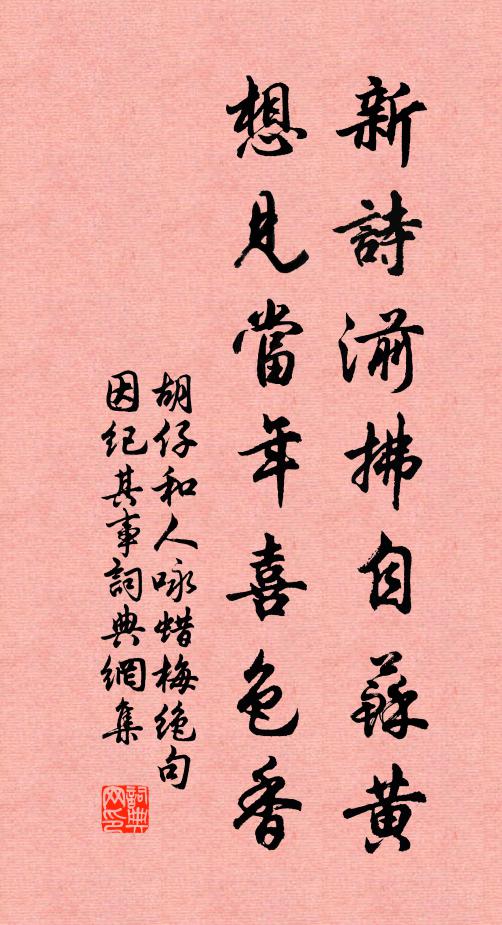 新詩湔拂自蘇黃
想見當年喜色香
胡仔和人咏蜡梅絶句
因纪其事詞典網集
詞典网印